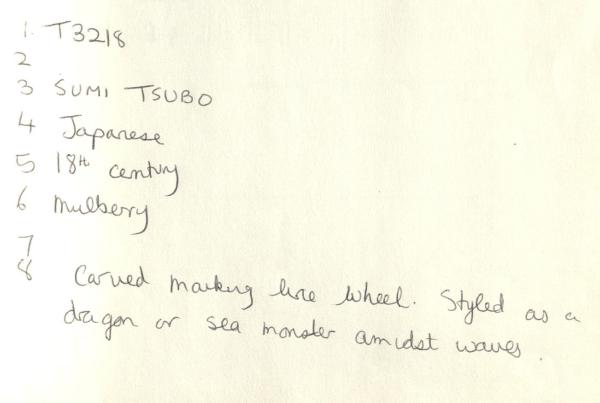 1. T3218
2
3 SUMI TSUBO
4 Japanese
5 18th century
6 Mulberry
7
8 Carved marking line wheel. Styled as a
dragon or sea monster amidst waves.